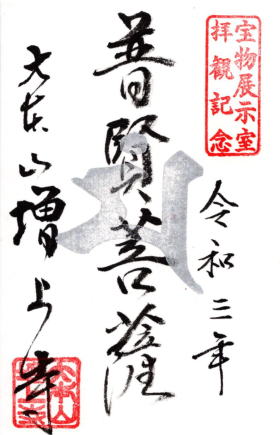 宝物展示室
拝観記念
令和三年
普賢菩薩
大本山増上寺